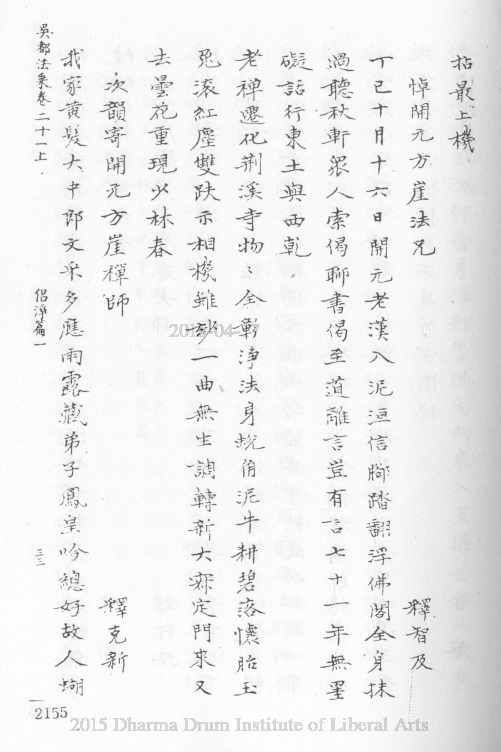 拈最上機
悼開元方崖法兄
釋智及
丁巳十月十六日開元老漢入泥洹信腳踏翻浮佛閣全身抹
過聽秋軒眾人索偈聊書偈至道離言豈有言七十一年無罣
礙話行東土與西乾
老禪遷化荆溪寺物物全彰淨法身蛻角泥牛耕碧落懷胎玉
兔滚紅塵雙趺示相機雖妙一曲無生調轉新大寂定門來又
去曇花重現少林春
次韻寄開元方崖禪師
釋克新
我家黄髮大中郎文采多應雨露藏弟子鳳皇吟總好故人蝴
吳都法乘卷二十一上
侶淨篇一
三三
2155
2015-04-27
2015 Dharma Drum Institute of Liberal Arts